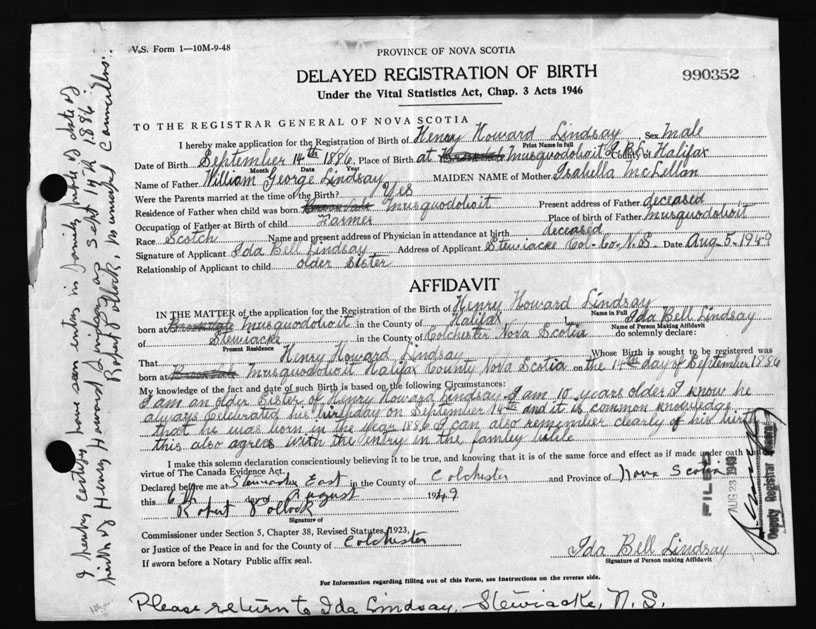 V.S. Form 1—10M-9-48
PROVINCE OF NOVA SCOTIA
DELAYED REGISTRATION OF BIRTH
990352
Under the Vital Statistics Act, Chap. 3 Acts 1946
TO THE REGISTRAR GENERAL OF NOVA SCOTIA
I hereby make application for the Registration of Birth of Henry Howard Lindsay Sex Male
Print Name in full
Date of Birth September 14th 1886, Place of Birth at Brookvale Musquodoboit County of Halifax
Month Date Year
Name of Father William George Lindsay MAIDEN NAME of Mother Isabella McLellan
Were the Parents married at time of the Birth? Yes
Residence of Father when child was born Brookvale Musquodoboit Present address of Father deceased
Occupation of Father at Birth of child Farmer Place of birth of Father Musquodoboit
Race Scotch Name and present address of Physician in attendance at birth deceased
Signature of Applicant Ida Bell Lindsay Address of Applicant Stewiacke Col. Co. N.S. Date Aug 5-1949
Relationship of Applicant to child older sister
AFFIDAVIT
IN THE MATTER of the application for the Registration of the Birth of Henry Howard Lindsay
Name in Full
born at Brookvale Musquodoboit in the County of Halifax I, Ida Bell Lindsay
Name of Person Making Affidavit
of Stewiacke in the County of Colchester Nova Scotia do solemnly declare:
Present Residence
That Henry Howard Lindsay Whose Birth is sought to be registered was
born at Brookvale Musquodoboit Halifax County Nova Scotia on the 14th day of September 1886
My knowledge of the fact and date of such Birth is based on the following Circumstances:
I am an older Sister of Henry Howard Lindsay I am 10 years older I know he
always celebrated his birthday on September 14th and it is common knowledge
that he was born in the year 1886 I can also remember clearly of his birth
this also agrees with the entry in the family bible
I make this solemn declaration conscientiously believing it to be true, and knowing that it is of the same force and effect as if made under oath by
virtue of The Canada Evidence Act.
Declared before me at Stewiacke East in the County of Colchester and Province of Nova Scotia
this 6th day August 1949
Robert Pollock
Signature of
Commissioner under Section 5, Chapter 38, Revised Statutes, 1923,
or Justice of the Peace in and for the County of Colchester
If sworn before a Notary Public affix seal.
Ida Bell Lindsay
Signature of Person making Affidavit
For Information regarding filling out of this Form, see Instructions on the reverse side.
Please return to Ida Lindsay, Stewiacke, N.S.
I hereby certify have seen entry in family bible of date of
birth of Henry Howard Lindsay as Sept 14th 1886.
Robert Pollock, Municipal Councillor.
FILED
AUG 23 1949
Deputy Registrar General